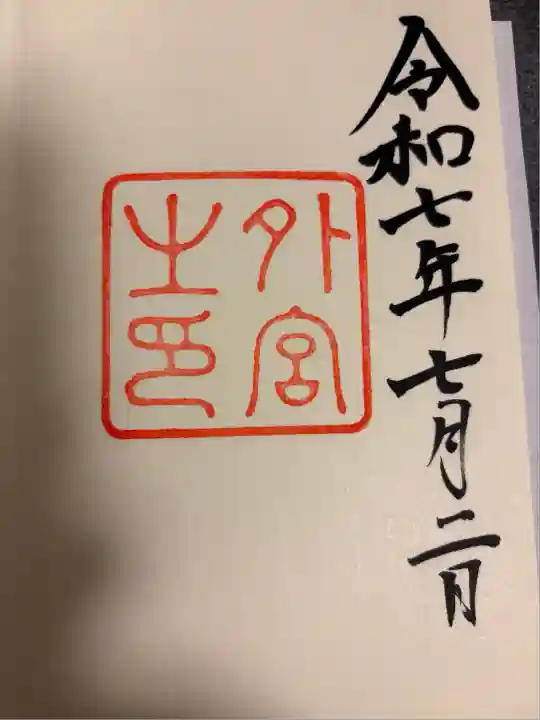 令和七年七月二日
外宮
之印